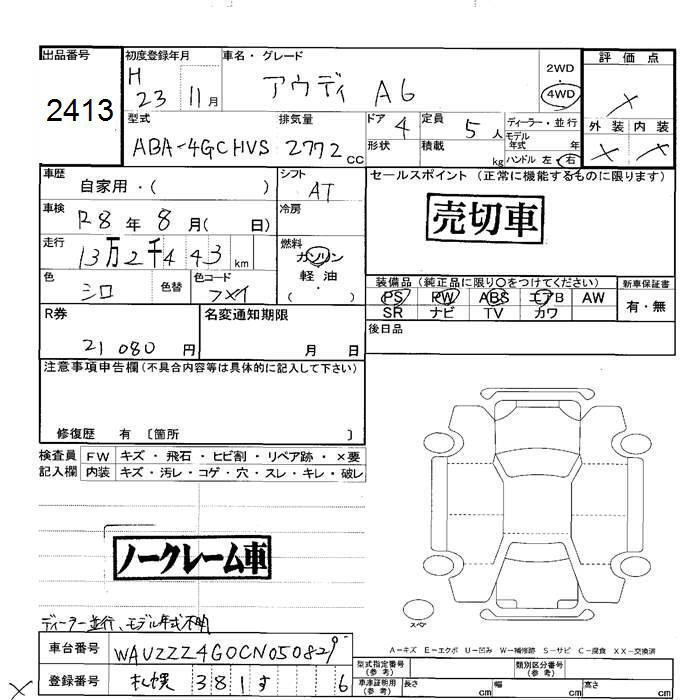 出品番号 初度登録年月 車名・グレード 評価点
2413 H 23 11月 アウディ A6 2WD・4WD ×
型式 排気量 ドア 4 定員 5人 ディーラー・並行 外装 内装
ABA-4GCHVS 2772cc 形状 積載 kg モデル年式 年 × ×
ハンドル 左・右
車歴 シフト セールスポイント (正常に機能するものに限ります)
自家用・( ) AT
車検 冷房 売切車
R8年 8月( 日)
走行 燃料
13万2千443km ガソリン
軽油
・
( )
色 色替 色コード 装備品 (純正品に限り○をつけてください) 新車保証書
シロ フメイ PS PW ABS エアB AW 有・無
SR ナビ TV カワ
R券 名変通知期限 後日品
21080円 月 日
注意事項申告欄(不具合内容等は具体的に記入して下さい)
修復歴 有 〔箇所 〕
検査員 FW キズ・飛石・ヒビ割・リペア跡・×要
記入欄 内装 キズ・汚レ・コゲ・穴・スレ・キレ・破レ
ノークレーム車
スペア
ディーラー並行、モデル年式不明
A－キズ E－エクボ U－凹み W－補修跡 S－サビ C－腐食 XX－交換済
車台番号 WAUZZZ4G0CN050829
型式指定番号(参考) 類別区分番号(参考)
× 登録番号 札幌 381 す 6
車庫証明用(参考) 長さ cm 幅 cm 高さ cm